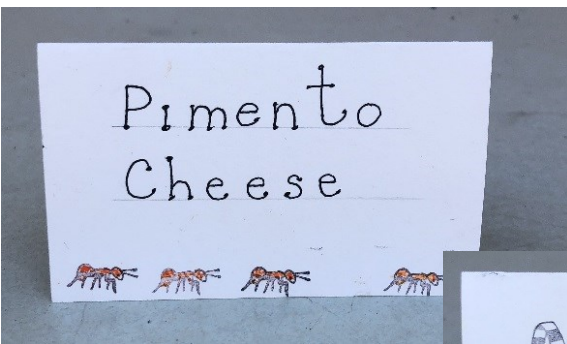 Pimento
Cheese